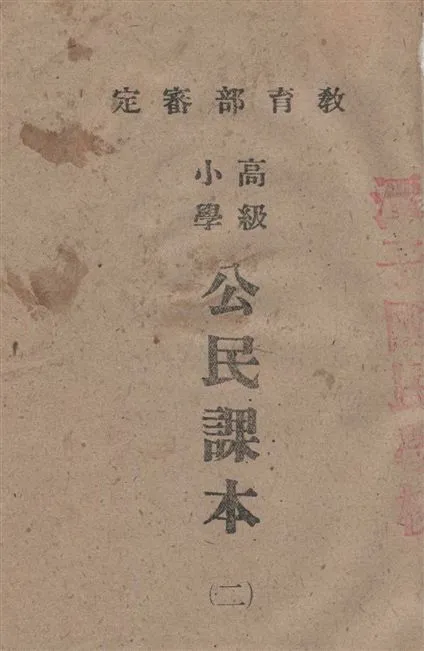 教育部審定
高級
小學
公民課本
(二)